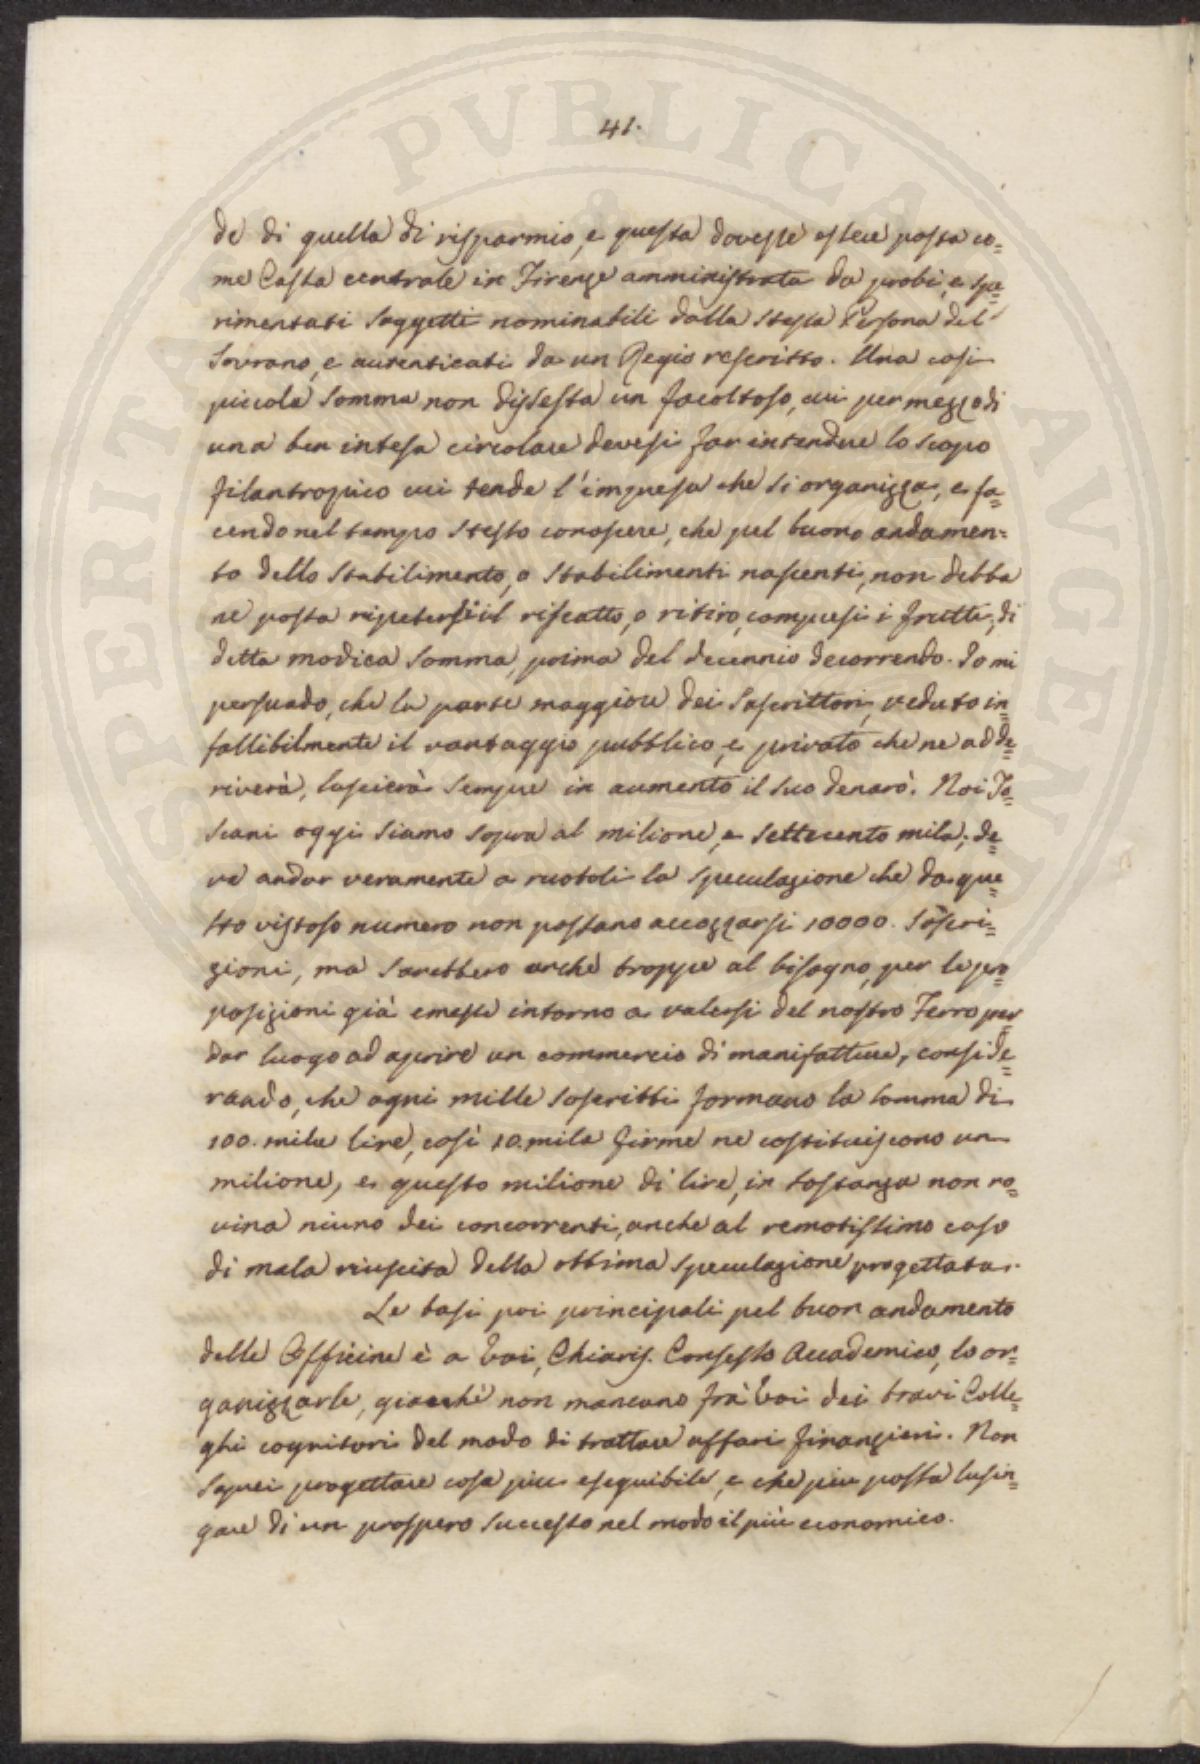 PROSPERITAS PVBLICA AVGENDA
41.
de di quella di risparmio, e questa dovesse essere posta co=
me Cassa centrale in Firenze amministrata da probi, e spe=
rimentati soggetti nominabili dalla stessa Persona del
Sovrano, e autenticati da un Regio rescritto. Una così
piccola somma non dissesta un facoltoso, cui per mezzo di
una ben intesa circolare devesi far intendere lo scopo
filantropico cui tende l'impresa che si organizza, e fa=
cendo nel tempo stesso conoscere, che pel buono andamen=
to dello Stabilimento, o Stabilimenti nascenti, non debba
ne possa ripetersi il riscatto, o ritiro, compresi i frutti, di
detta modica somma, prima del decennio decorrendo. Io mi
persuado, che la parte maggiore dei Soscrittori, veduto in=
fallibilmente il vantaggio pubblico, e privato che ne adde=
riverà, lascierà sempre in aumento il suo denaro. Noi To=
scani oggi siamo sopra al milione, e settecento mila; de=
ve andar veramente a ruotoli la speculazione che da que=
sto vistoso numero non possano accozzarsi 10000. Soscri=
zioni, ma sarebbero anche troppe al bisogno, per le pro=
posizioni già emesse intorno a valersi del nostro Ferro per
dar luogo ad aprire un commercio di manifatture, conside=
rando, che ogni mille soscritti formano la somma di
100. mila lire, così 10. mila firme ne costituiscono un
milione, e questo milione di lire, in sostanza non ro=
vina niuno dei concorrenti, anche al remotissimo caso
di mala riuscita della ottima speculazione progettata.
Le basi poi principali pel buon andamento
delle Officine è a Voi, Chiaris. Consesso Accademico, lo or=
ganizzarle, giacchè non mancano fra Voi dei bravi Colle=
ghi cognitori del modo di trattare affari finanzieri. Non
saprei progettare cosa più eseguibile, e che più possa lusin=
gare di un prospero successo nel modo il più economico.